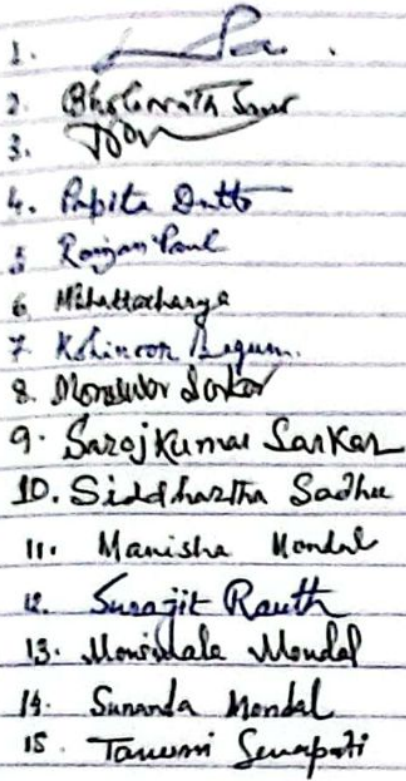 1.
2. Bholanath
3.
4. Papita Dutta
5 Ranjan Paul
6 MBhattacharya
7. Kohinoor Begum.
8. Sarkar
9. Saroj Kumar Sarkar
10. Siddhartha Sadhu
11. Manisha Mondal
12. Surajit Routh
13. Mondal
14. Sunanda Mondal
15. Senapati